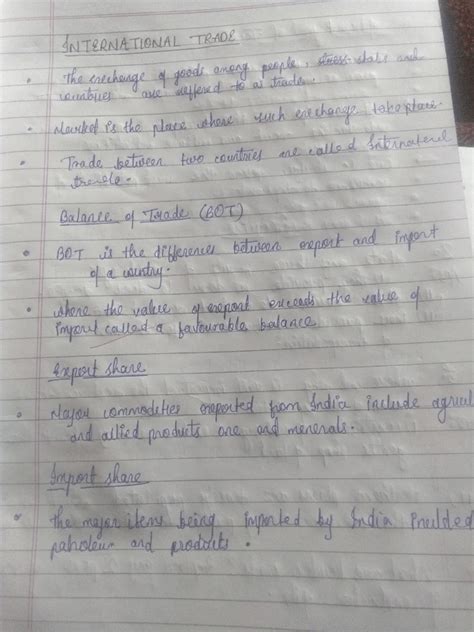 INTERNATIONAL TRADE
The exchange of goods among people, state and
countries are reffered to as trade.
Market is the place where such exchange take place.
Trade between two countries are called International
trade.
Balance of Trade (BOT)
BOT is the difference between export and import
of a country.
where the value of export exceeds the value of
import called a favourable balance
Export share
Major commodities exported from India include agricul
and allied products ore and menerals.
Import share
the major items being imported by India
and products.